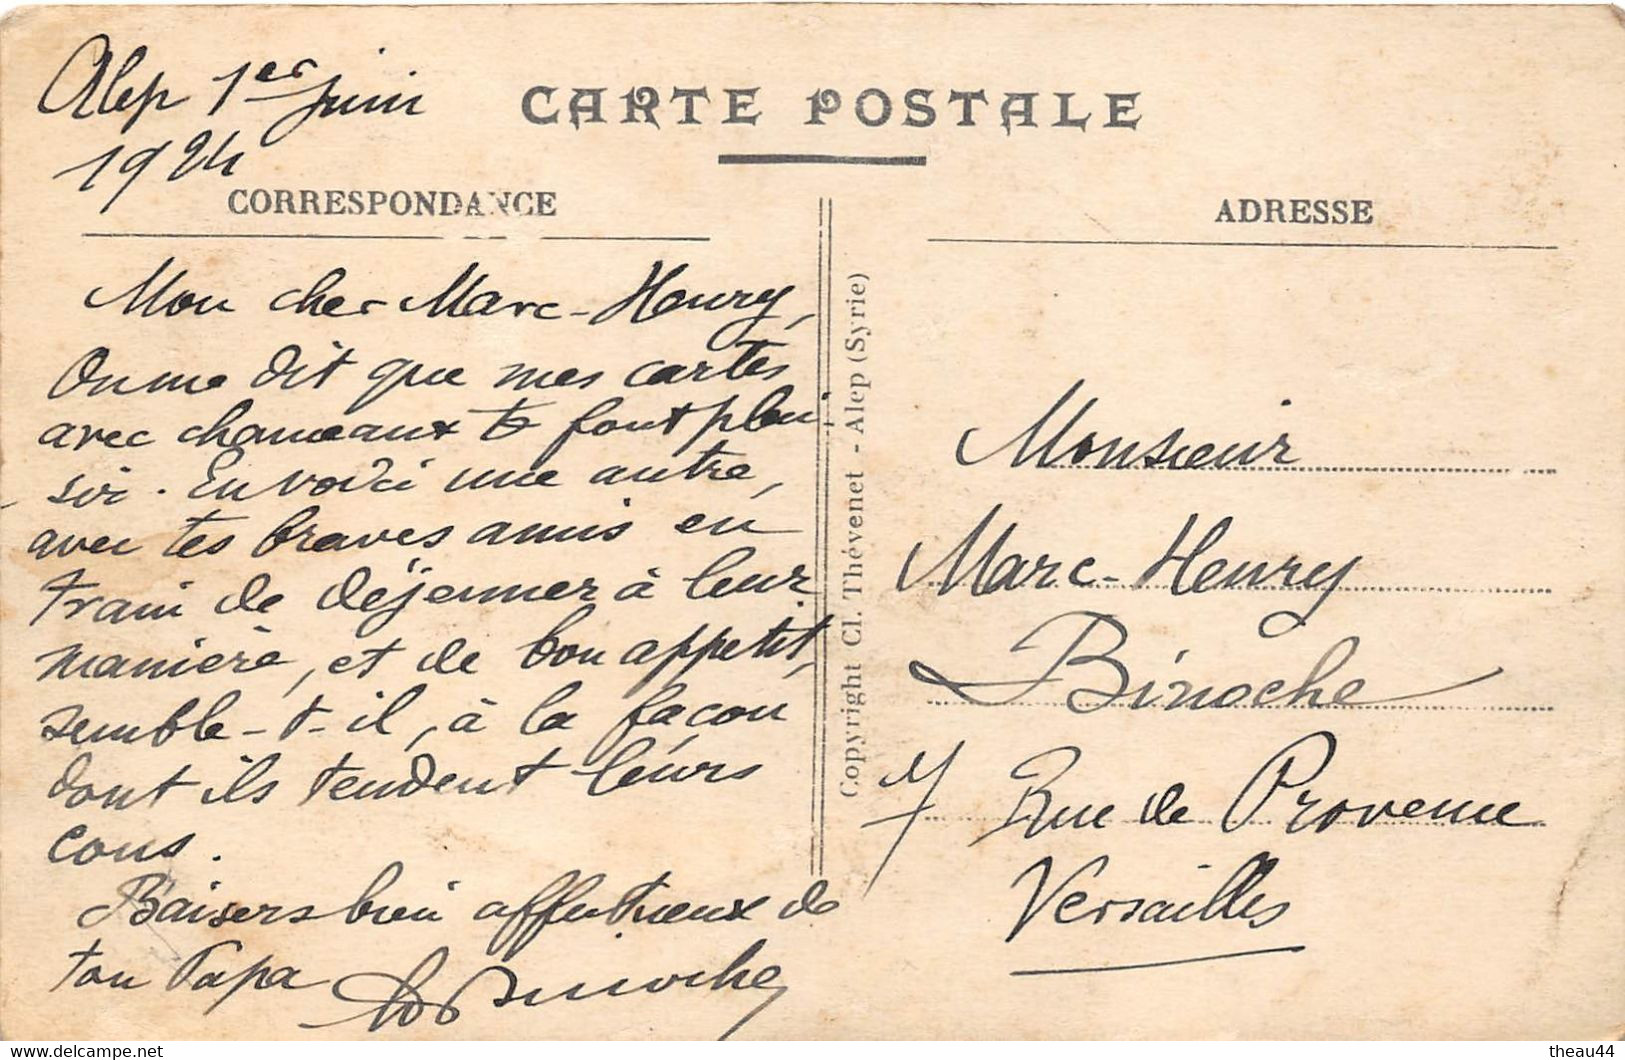 Alep 1er juin
1924
CARTE POSTALE
CORRESPONDANCE
ADRESSE
Mon cher Marc-Henry,
On me dit que mes cartes
avec chameaux te font plai
sir. En voici une autre,
avec tes braves amis en
train de déjeuner à leur
manière, et de bon appétit,
semble-t-il, à la façon
dont ils tendent leurs
cous.
Baisers bien affectueux de
ton Papa
Binoche
Copyright Cl. Thévenet - Alep (Syrie)
Monsieur
Marc-Henry
Binoche
Rue de Provence
Versailles
theau44